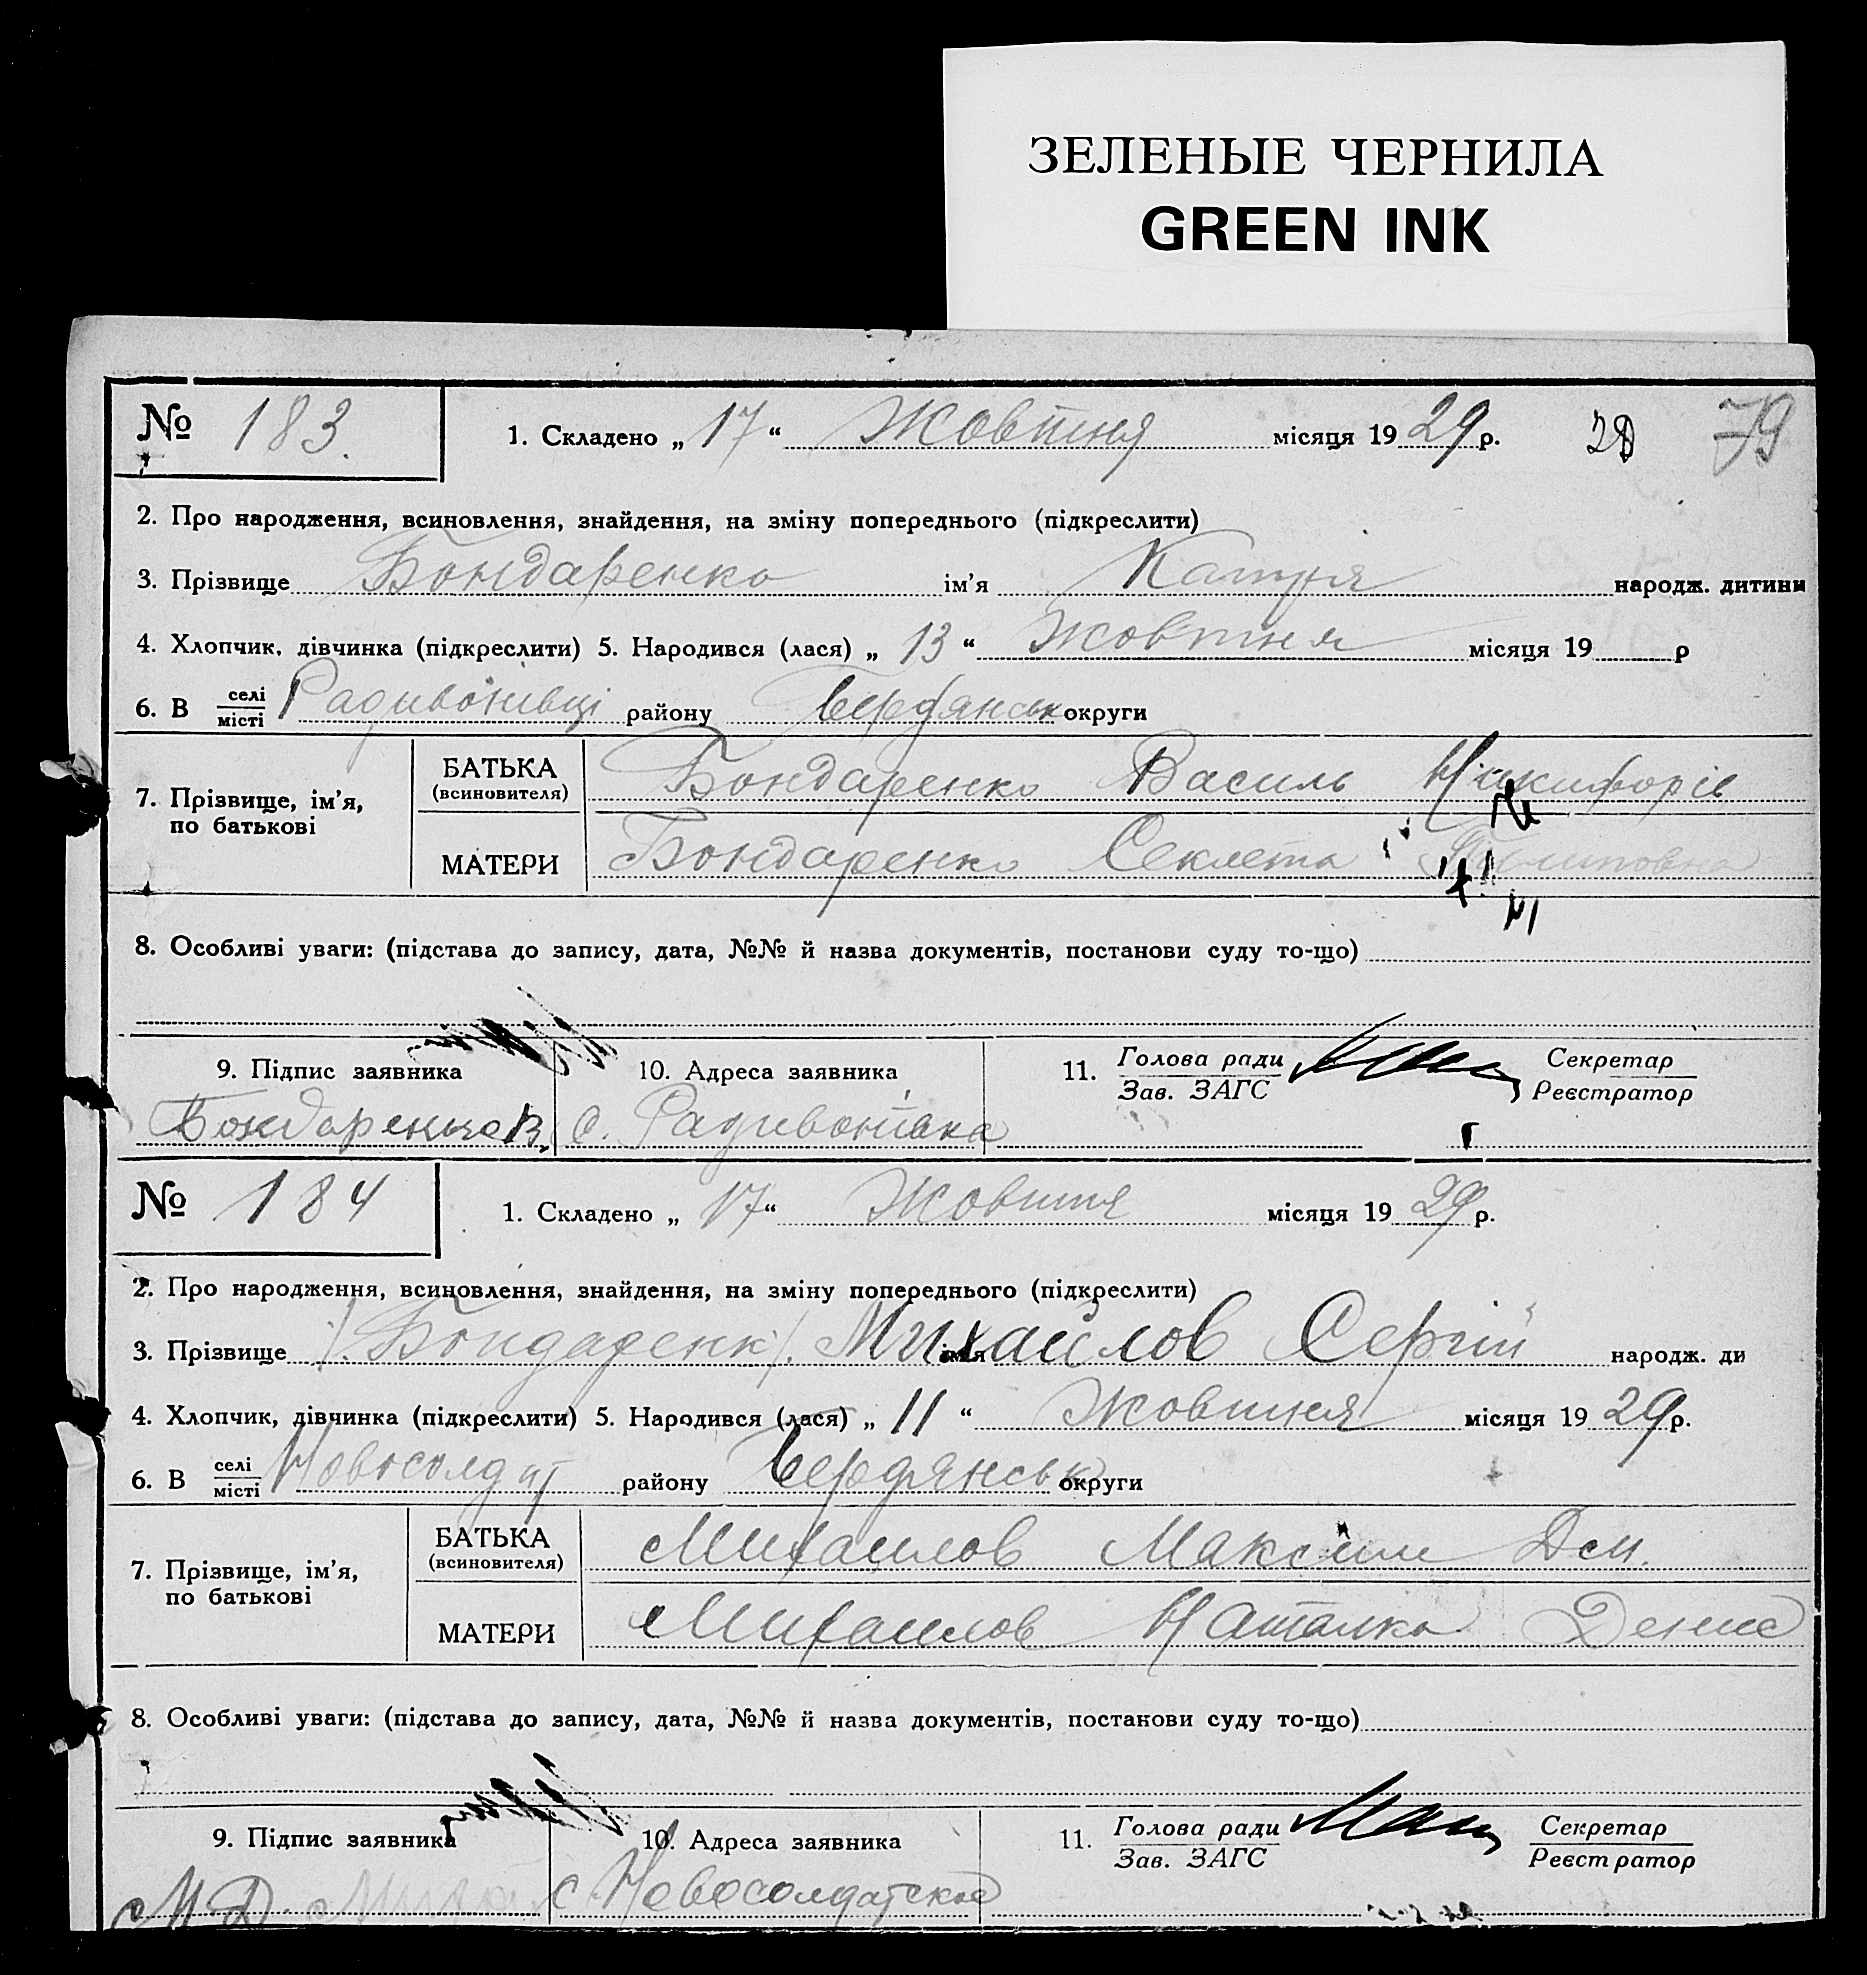 ЗЕЛЕНЫЕ ЧЕРНИЛА
GREEN INK
№ 183. 1. Складено „ 17 “ Жовтня місяця 19 29 р. 79
2. Про народження, всиновлення, знайдення, на зміну попереднього (підкреслити)
3. Прізвище Бондаренко ім’я Катря народж. дитини
4. Хлопчик, дівчинка (підкреслити) 5. Народився (лася) „ 13 “ Жовтня місяця 19 р
6. В селі місті Радивонівці району Бердянськ округи
7. Прізвище, ім’я, по батькові
БАТЬКА (всиновителя) Бондаренко Василь Никифорів
МАТЕРИ Бондаренко Секлета
8. Особливі уваги: (підстава до запису, дата, №№ й назва документів, постанови суду то-що)
9. Підпис заявника 10. Адреса заявника 11. Голова ради Зав. ЗАГС Секретар Реєстратор
Бондаренко В. с. Радивонівка
№ 184 1. Складено „ 17 “ Жовтня місяця 19 29 р.
2. Про народження, всиновлення, знайдення, на зміну попереднього (підкреслити)
3. Прізвище /Бондаренк/. Михайлов ім’я Сергій народж. ди
4. Хлопчик, дівчинка (підкреслити) 5. Народився (лася) „ 11 “ Жовтня місяця 19 29 р.
6. В селі місті Новосолдат району Бердянськ округи
7. Прізвище, ім’я, по батькові
БАТЬКА (всиновителя) Михаилов Максим Дем.
МАТЕРИ Михаилов Наталка Денис
8. Особливі уваги: (підстава до запису, дата, №№ й назва документів, постанови суду то-що)
9. Підпис заявника 10. Адреса заявника 11. Голова ради Зав. ЗАГС Секретар Реєстратор
М. Д. с Новосолдатское